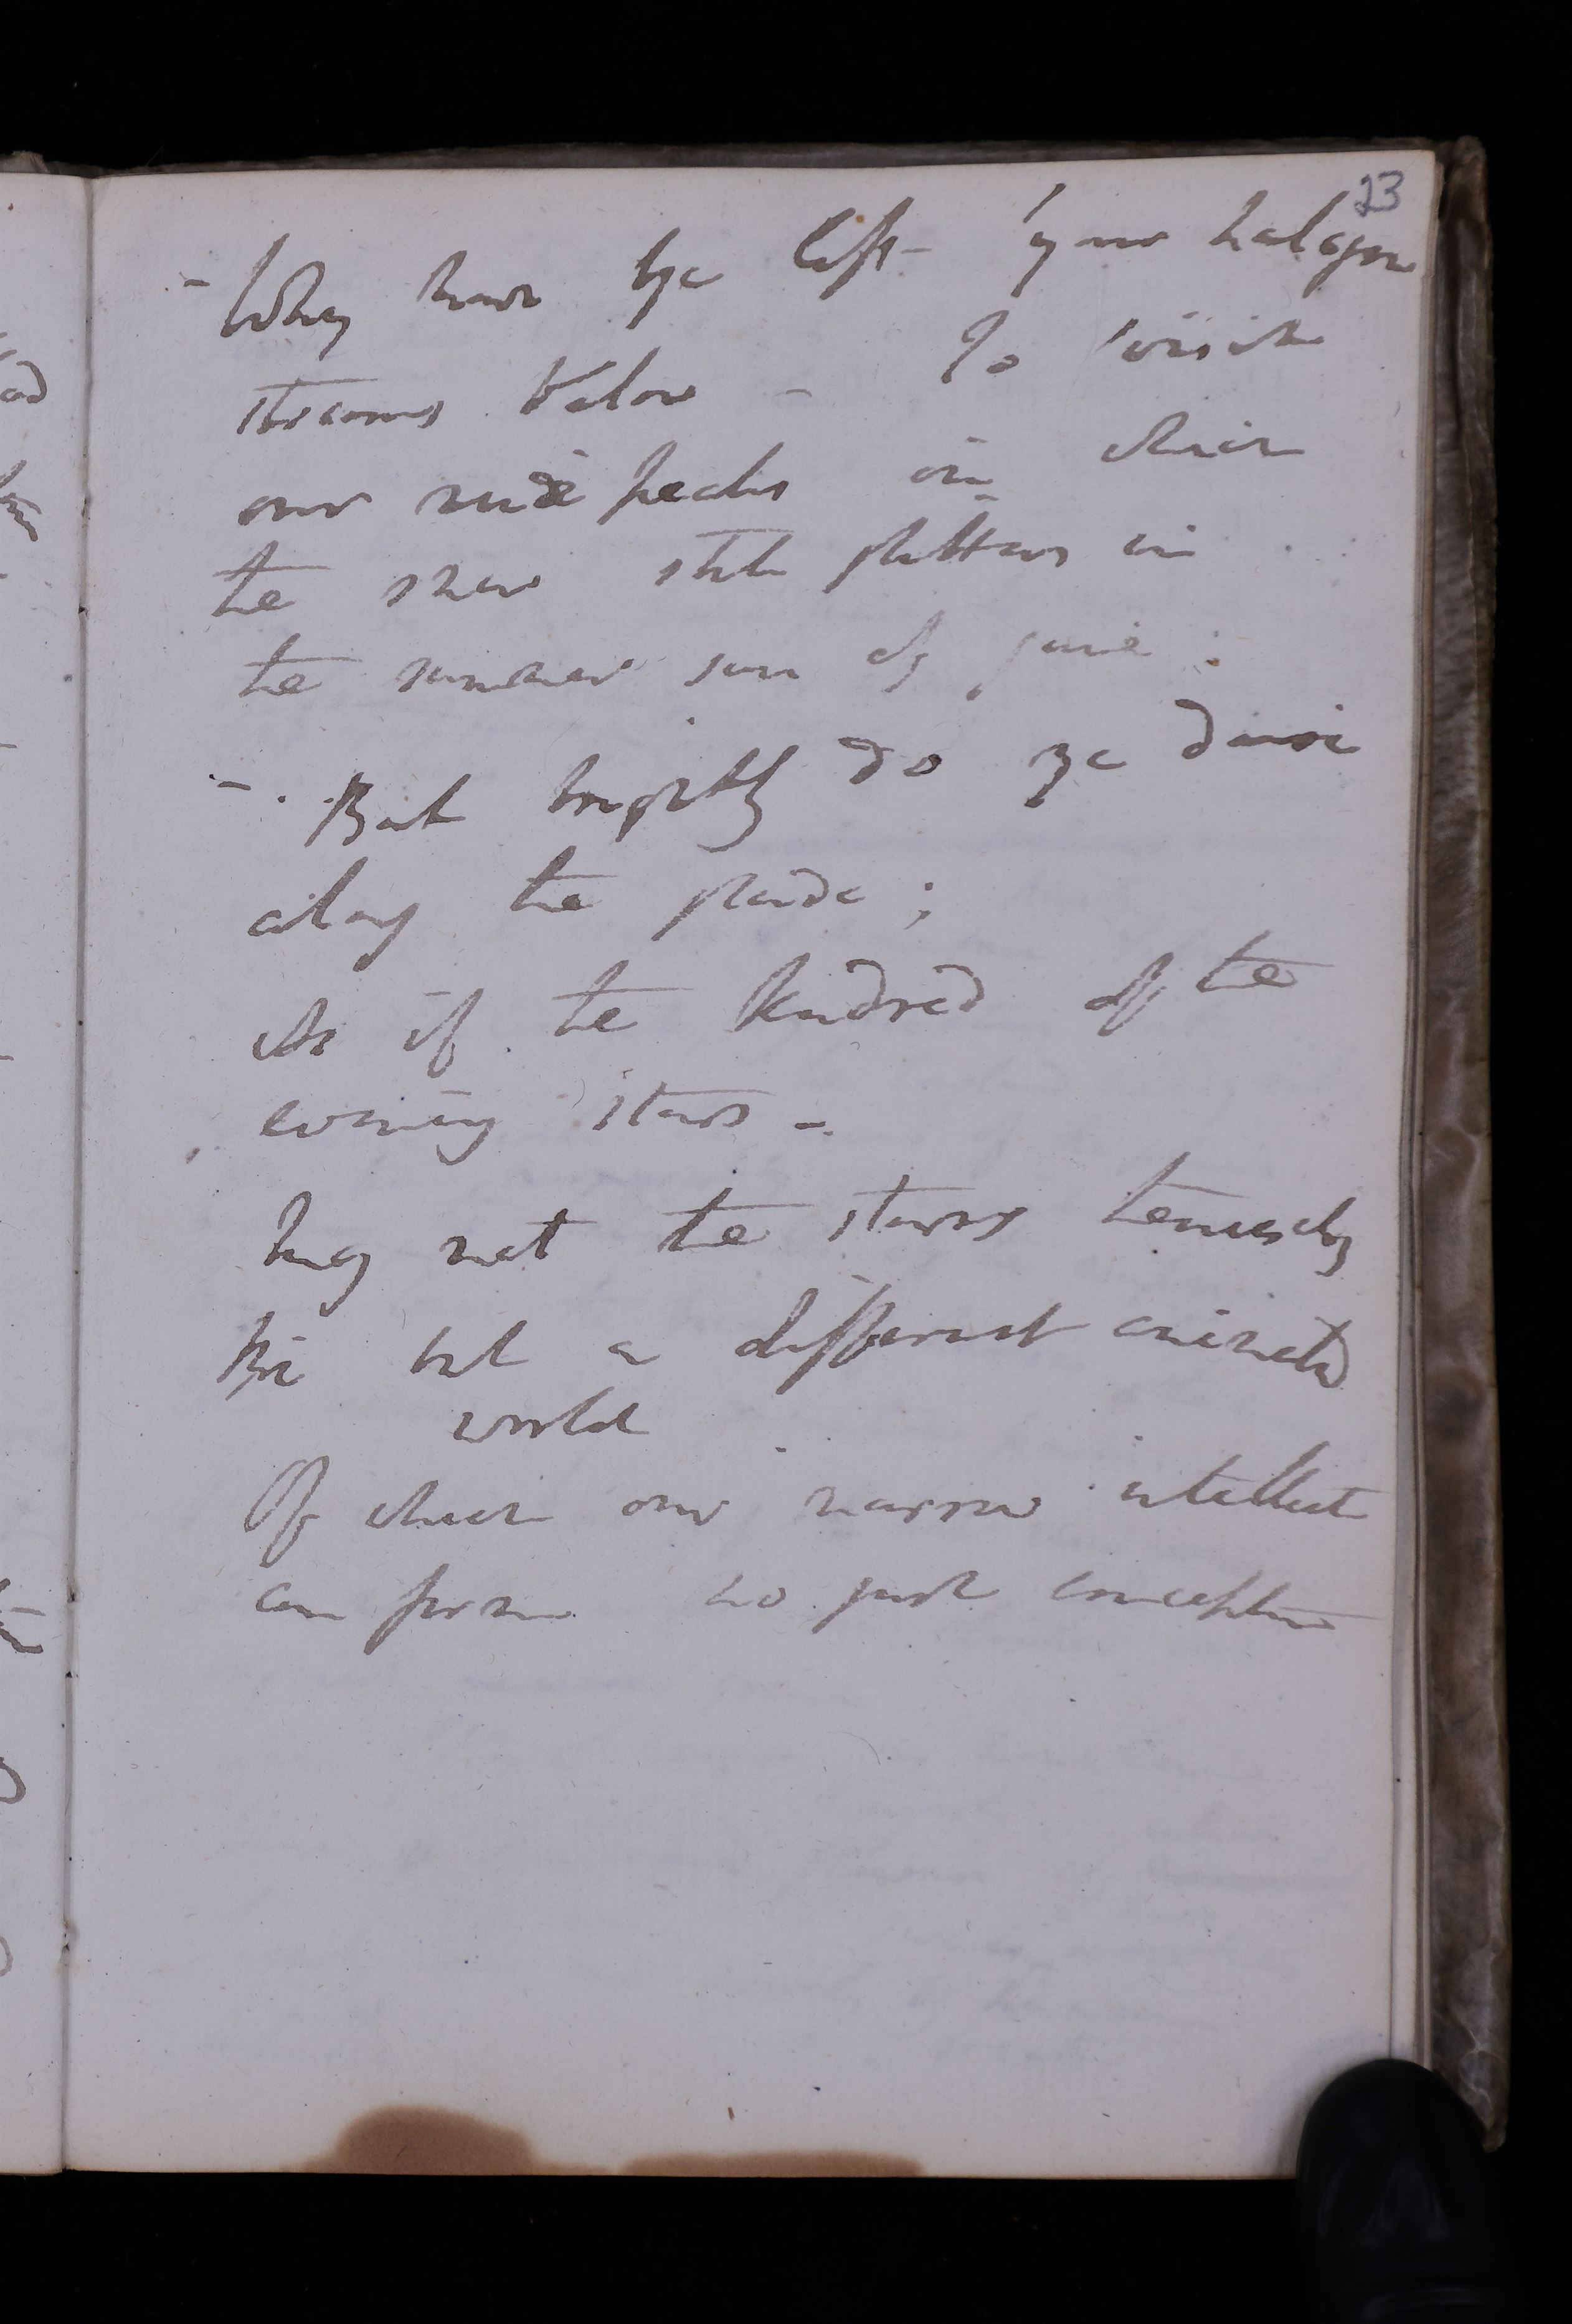 23
- Why have ye left your halcyon
streams below - To visit
our rude peaks on which
the snow still glitters in
the summer sun of june :
- But brightly do ye dance
along the glade ;
As if the kindred of the
evening stars -
May not the starry
Be but a different animated
world
Of which our narrow intellect
can form no just conception